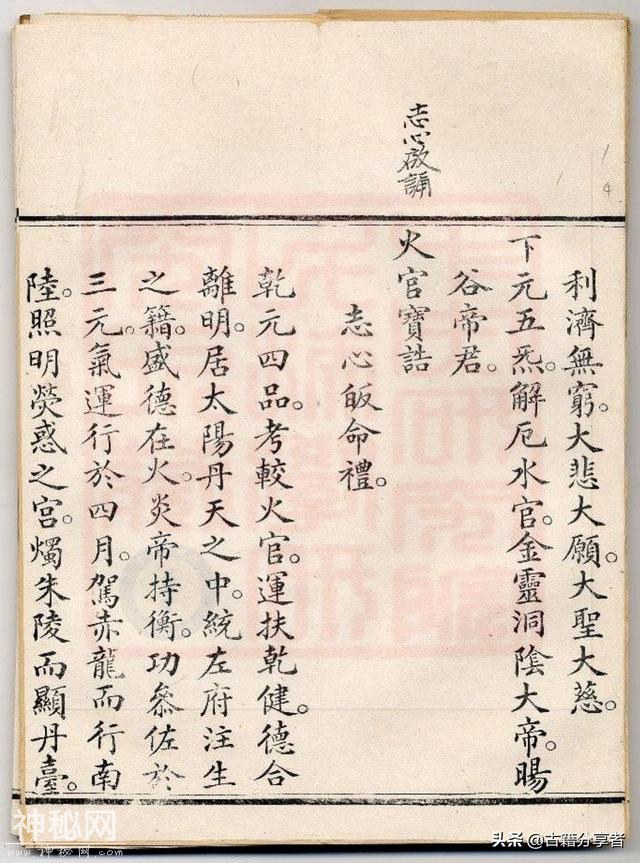 志心啟誦
利濟無窮。大悲大願。大聖大慈。
下元五炁。解厄水官。金靈洞陰大帝。暘
谷帝君。
火官寶誥
志心皈命禮。
乾元四品。考較火官。運扶乾健。德合
離明。居太陽丹天之中。統左府注生
之籍。盛德在火。炎帝持衡。功叅佐於
三元。氣運行於四月。駕赤龍而行南
陸。照明熒惑之宮。燭朱陵而顯丹臺。
神秘网
www.神秘网.com
头条 @古籍分享者